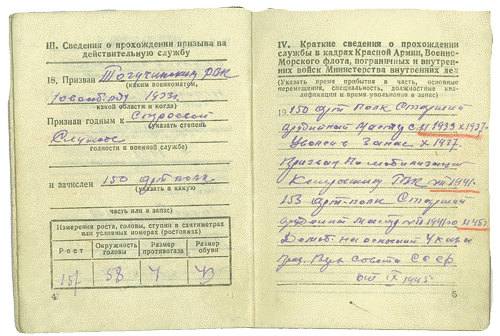 III. Сведения о прохождении призыва на
действительную службу
18. Призван Тогучинским РВК
(каким военкоматом,
Новосиб. обл 1933 г
какой области и когда)
Признан годным к Строевой
(указать степень
Службе
годности к военной службе)
и зачислен 150 арт полк
(указать в какую
часть или в запас)
Измерения роста, головы, ступни в сантиметрах
или условных номерах (ростовках)
Рост Окружность головы Размер противогаза Размер обуви
157 58 43
4
IV. Краткие сведения о прохождении
службы в кадрах Красной Армии, Военно-
Морского флота, пограничных и внутрен-
них войск Министерства внутренних дел
(Указать время прибытия в часть, основные
перемещения, специальность, должностные ква-
лификации и время увольнения в запас)
19 150 арт полк Старший
мастер с XI 1933 X 1937
Уволен в Запас X 1937
Призван По мобилизации
РВК III 1941
153 арт-полк Старший
мастер 1941 по XI 45
Демоб. на основании Указа
През. Вер совета СССР
от IX 1945
5